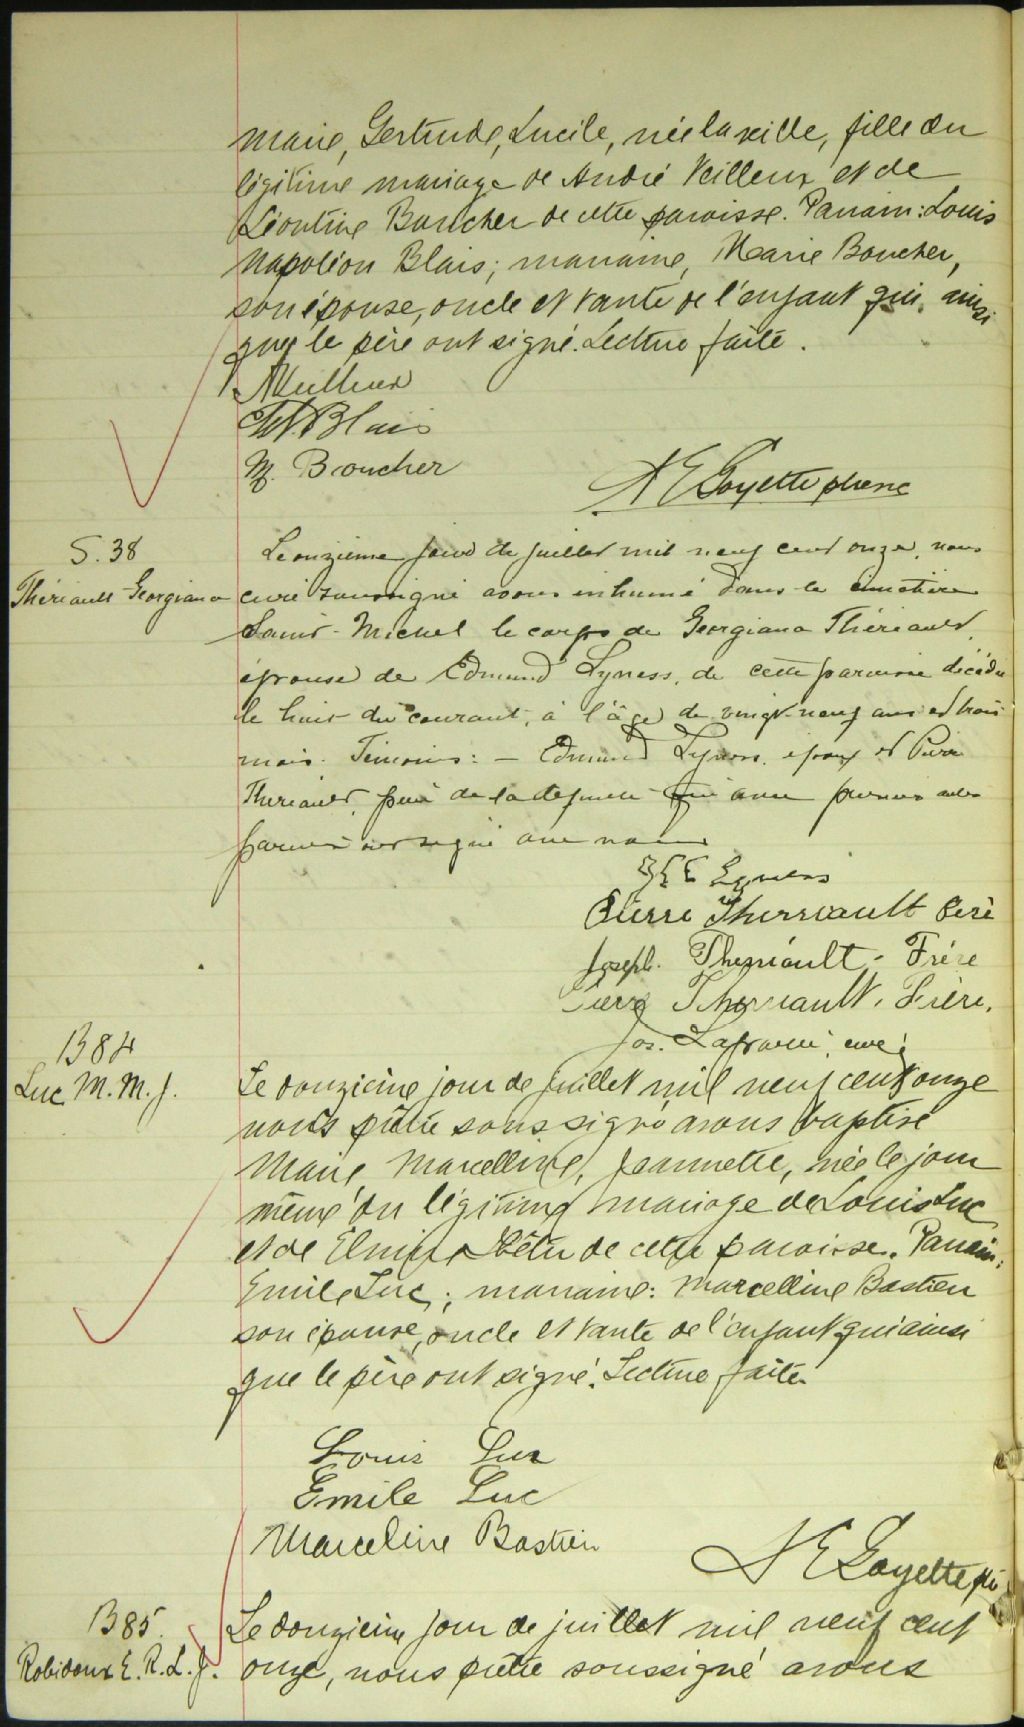 Marie, Gertrude, Lucile, née la veille, fille du
légitime mariage de André Veilleux et de
Léontine Boucher de cette paroisse. Parrain: Louis
Napoléon Blais; marraine, Marie Boucher,
son épouse, oncle et tante de l'enfant qui, ainsi
que le père ont signé. Lecture faite.
AVeilleux
Blais
M. Boucher
A E Goyette ptre
S. 38
Thériault Georgiana
Le onzième jour de juillet mil neuf cent onze, nous
curé soussigné avons inhumé dans le cimetière
Saint-Michel le corps de Georgiana Thériault,
épouse de Edmund Lyness, de cette paroisse décédée
le huit du courant, à l'âge de vingt-neuf ans et trois
mois. Témoins: - Edmund Lyness, époux et Pierre
Thériault, père de la défunte qui avec plusieurs autres
parents ont signé avec nous
Lyness
Pierre Therriault Père
Joseph. Therriault - Frére
Pierre Therriault. Frère.
Jos. curé
B 84
Luc M. M. J.
Le douzième jour de juillet mil neuf cent onze
nous prêtre soussigné avons baptisé
Marie, Marcelline, Jeannette, née le jour
même du légitime mariage de Louis Luc
et de de cette paroisse. Parrain:
Emile Luc; marraine: Marcelline Bastien
son épouse, oncle et tante de l'enfant qui ainsi
que le père ont signé. Lecture faite.
Louis Luc
Emile Luc
Marceline Bastien
A E Goyette ptre
B 85.
Robidoux E. R. L. J.
Le douzième jour de juillet mil neuf cent
onze, nous prêtre soussigné avons